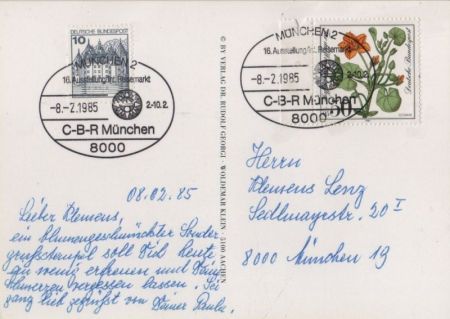 DEUTSCHE BUNDESPOST
10
MÜNCHEN 2
16. Ausstellung int. Reisemarkt
-8.-2.1985
2-10.2.
C-B-R München
8000
MÜNCHEN 2
16. Ausstellung int. Reisemarkt
-8.-2.1985
2-10.2.
C-B-R München
8000
Deutsche Bundespost
50
© BY VERLAG DR. RUDOLF GEORGI · WOLDEMAR KLEIN · 5100 AACHEN
08.02.85
Lieber Klemens,
ein blumengeschmückter Sonder-
grußstempel soll Dich heute
erfreuen und
vergessen lassen. Sei
ganz lieb gegrüßt von Deiner Paula.
Herrn
Klemens Lenz
Sedlmayrstr. 20 I
8000 München 19